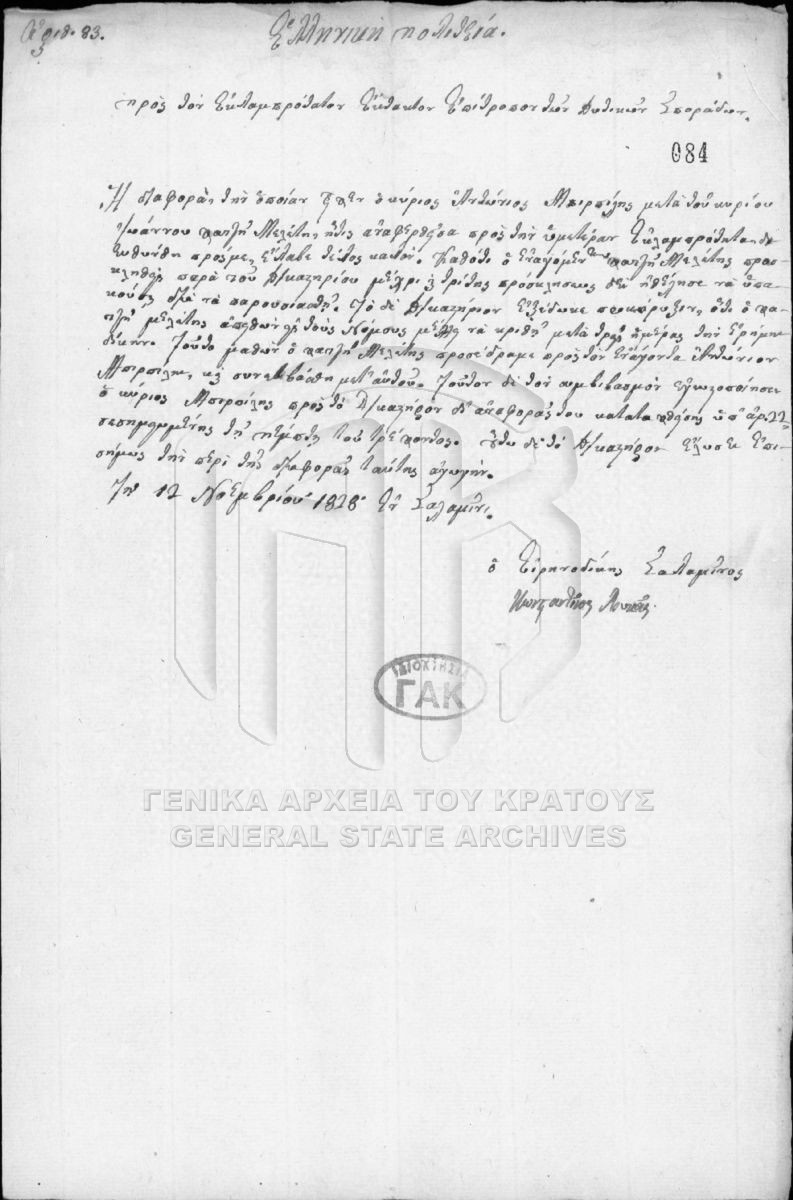 Ἀριθ. 83.
Ἑλληνικὴ πολιτεία.
πρὸς τὸν Ἐκλαμπρότατον Ἔκτακτον Ἐπίτροπον τῶν Δυτικῶν Σποράδων.
084
Ἡ διαφορὰ, τὴν ὁποίαν εἶχεν ὁ κύριος Ἀντώνιος Μπιρπίλης μετὰ τοῦ κυρίου
Ἰωάννου χατζῆ Μελέτη, ἥτις ἀναφερθεῖσα πρὸς τὴν ὑμετέραν Ἐκλαμπρότητα, δι
ευθύνθη πρός με, ἔλαβε τέλος καλόν. Καθότι ὁ ἐναγόμενος χατζῆ Μελέτης προσ
κληθεὶς παρὰ τοῦ Δικαστηρίου μέχρι τρίτης προσκλήσεως δὲν ἠθέλησε νὰ ὑπα
κούσῃ διὰ νὰ παρουσιασθῇ. Τὸ δὲ Δικαστήριον ἐξέδωκε προκήρυξιν, ὅτι ὁ χα
τζῆ μελέτης ἀπειθῶν εἰς τοὺς Νόμους μέλλει νὰ κριθῇ μετὰ τρεῖς ἡμέρας τὴν ἐρήμην
δίκην. Τοῦτο μαθὼν ὁ χατζῆ Μελέτης προσέδραμε πρὸς τὸν ἐνάγοντα Ἀντώνιον
Μπιρπίλην, καὶ συνεβιβάσθη μετ' αὐτοῦ. Τοῦτον δὲ τὸν συμβιβασμὸν ἐγνωστοποίησεν
ὁ κύριος Μπιρπίλης πρὸς τὸ Δικαστήριον δι' ἀναφορᾶς του ὑπ' ἀρ. 22
σεσημειωμένης τῇ πέμπτῃ τοῦ τρέχοντος. τὸ Δικαστήριον ἔλυσεν ἐπι
σήμως τὴν περὶ τῆς διαφορᾶς ταύτης ἀγωγήν.
Τῇ 12 Νοεμβρίου 1828 ἐν Σαλαμῖνι.
ὁ Εἰρηνοδίκης Σαλαμῖνος
Κωνσταντῖνος
ΙΔΙΟΚΤΗΣΙΑ
ΓΑΚ
ΓΕΝΙΚΑ ΑΡΧΕΙΑ ΤΟΥ ΚΡΑΤΟΥΣ
GENERAL STATE ARCHIVES